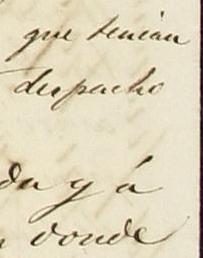 que tenian
despacho
da y á
donde